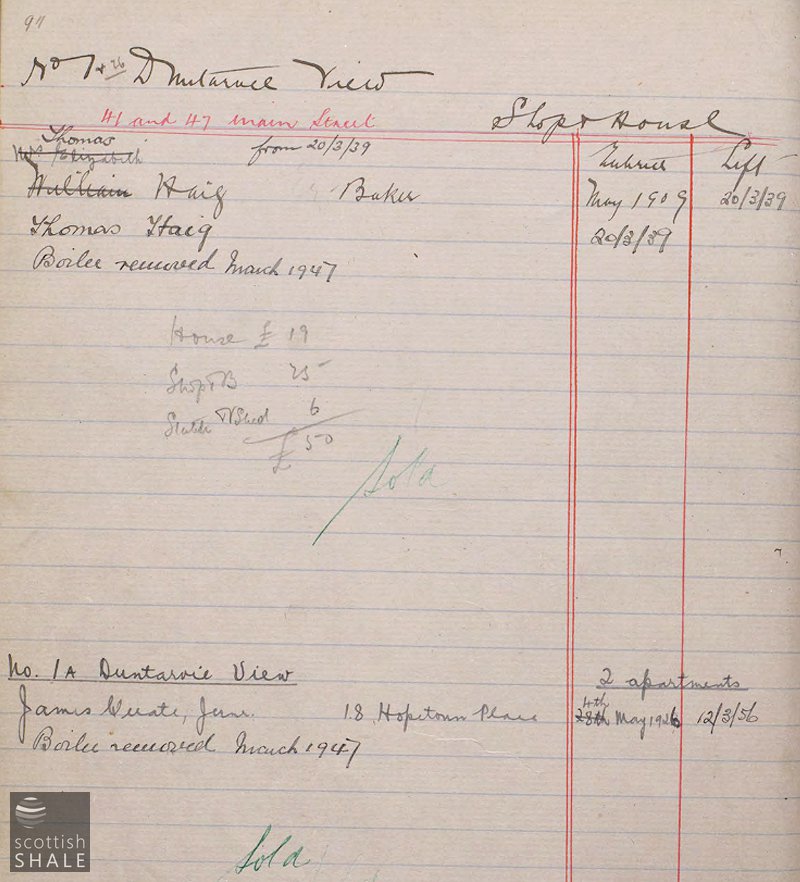 97
No 1 & 26 Duntarvie View
41 and 47 main Street
Shop & House
Thomas
Mrs Elizabeth from 20/3/39
Entered Left
William Haig Baker May 1909 20/3/39
Thomas Haig 20/3/39
Boiler removed March 1947
House £ 19
Shop & B 25
Stable & Shed 6
£ 50
Sold
No. 1A Duntarvie View 2 apartments
4th
James Junr. 18 Hopetoun Place 28th May 1926 12/3/56
Boiler removed March 1947
Sold
scottish
SHALE